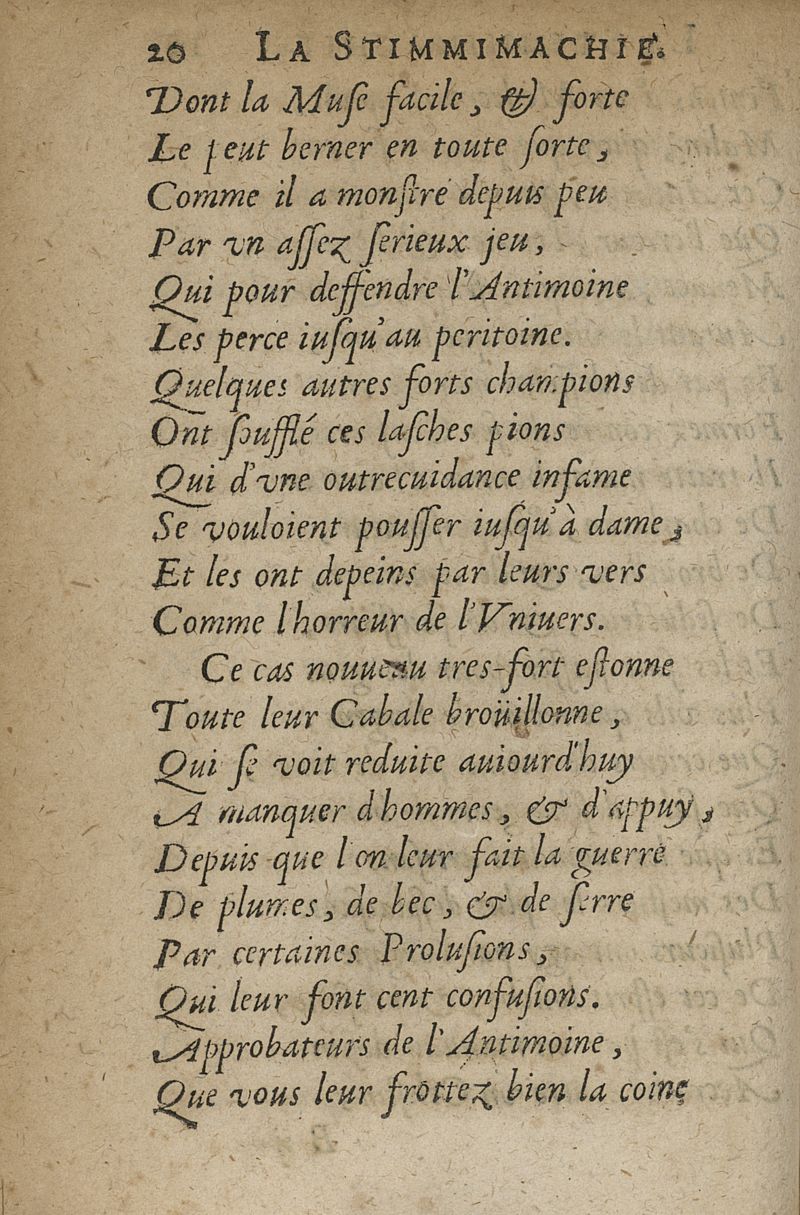 20 LA STIMMIMACHIE.
Dont la Muſe facile, & forte
Le peut berner en toute ſorte,
Comme il a monſtré depuis peu
Par vn aſſez ſerieux jeu,
Qui pour deffendre l'Antimoine
Les perce iuſqu'au peritoine.
Quelques autres forts champions
Ont ſoufflé ces laſches pions
Qui d'vne outrecuidance infame
Se vouloient pouſſer iuſqu'à dame,
Et les ont depeins par leurs vers
Comme l'horreur de l'Vniuers.
Ce cas nouueau tres-fort eſtonne
Toute leur Cabale broüillonne,
Qui ſe voit reduite auiourd'huy
A manquer d'hommes, & d'appuy,
Depuis que l'on leur fait la guerre
De plumes, de bec, & de ſerre
Par certaines Proluſions,
Qui leur font cent confuſions.
Approbateurs de l'Antimoine,
Que vous leur frottez bien la coine